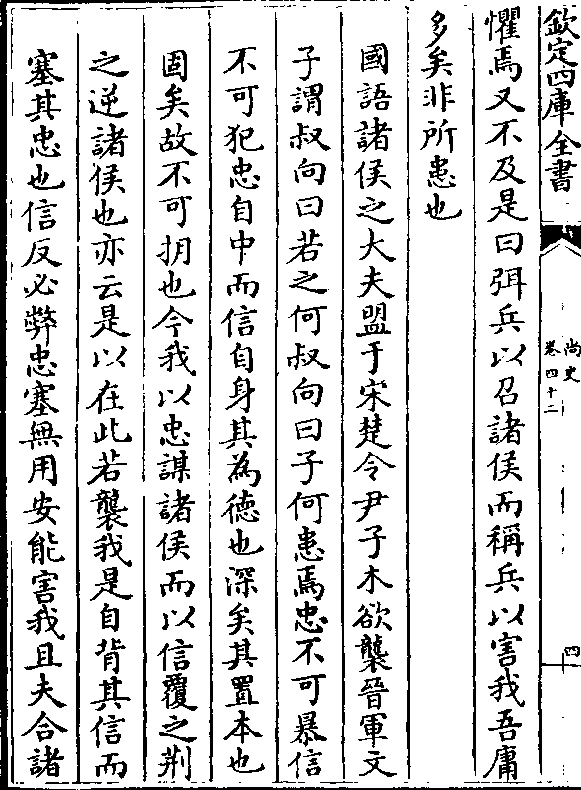 欽定四庫全書
尚史
卷四十二
四
懼焉又不及是曰弭兵以召諸侯而稱兵以害我吾庸
多矣非所患也
國語諸侯之大夫盟于宋楚令尹子木欲襲晉軍文
子謂叔向曰若之何叔向曰子何患焉忠不可暴信
不可犯忠自中而信自身其為德也深矣其置本也
固矣故不可抈也今我以忠謀諸侯而以信覆之荆
之逆諸侯也亦云是以在此若襲我是自背其信而
塞其忠也信反必弊忠塞無用安能害我且夫合諸